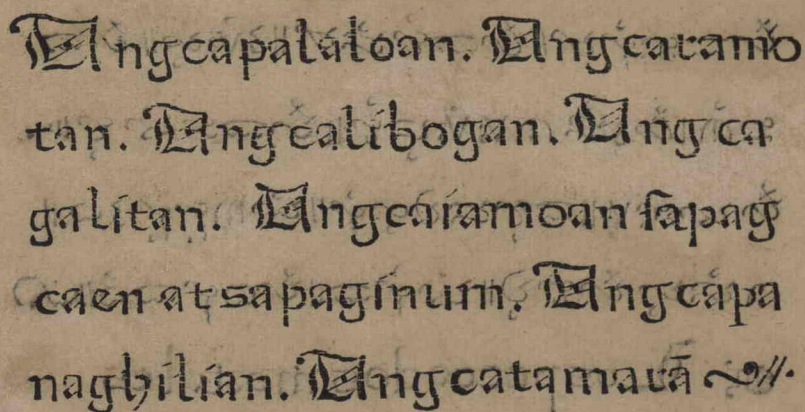 Ang capalaloan. Ang caramo
tan. Ang calibogan. Ang ca
galitan. Ang caiamoan ſapag
caen at sa paginum. Ang capa
naghilian. Ang catamarā